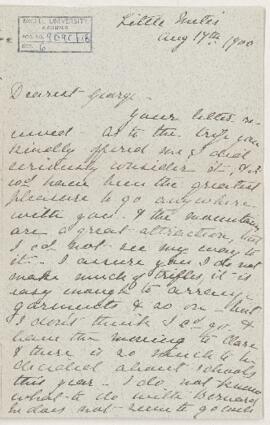 McGILL UNIVERSITY
ARCHIVES
ACC. NO.
REF. 6
Little Metis
Aug 17th 1900
Dearest George.
Your letter re-
ceived. as to the trip you
kindly offered me, I did
seriously consider it, & it
wd have been the greatest
pleasure to go anywhere
with you. & the mountains
are a great attraction, but
I cd not see my way to
it. I assure you I do not
make much of trifles it is
easy enough to arrange
garments & so on – but
I don't think I cd go &
leave the moving to Clare
& there is so much to be
decided about schools
this year. I do not know
what to do with Bernard
he does not seem to go well